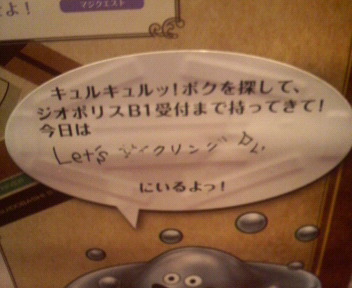 よ！
マジクエスト
キュルキュルッ！ボクを探して、
ジオポリスB1受付まで持ってきて！
今日は
Let's サイクリング
にいるよっ！